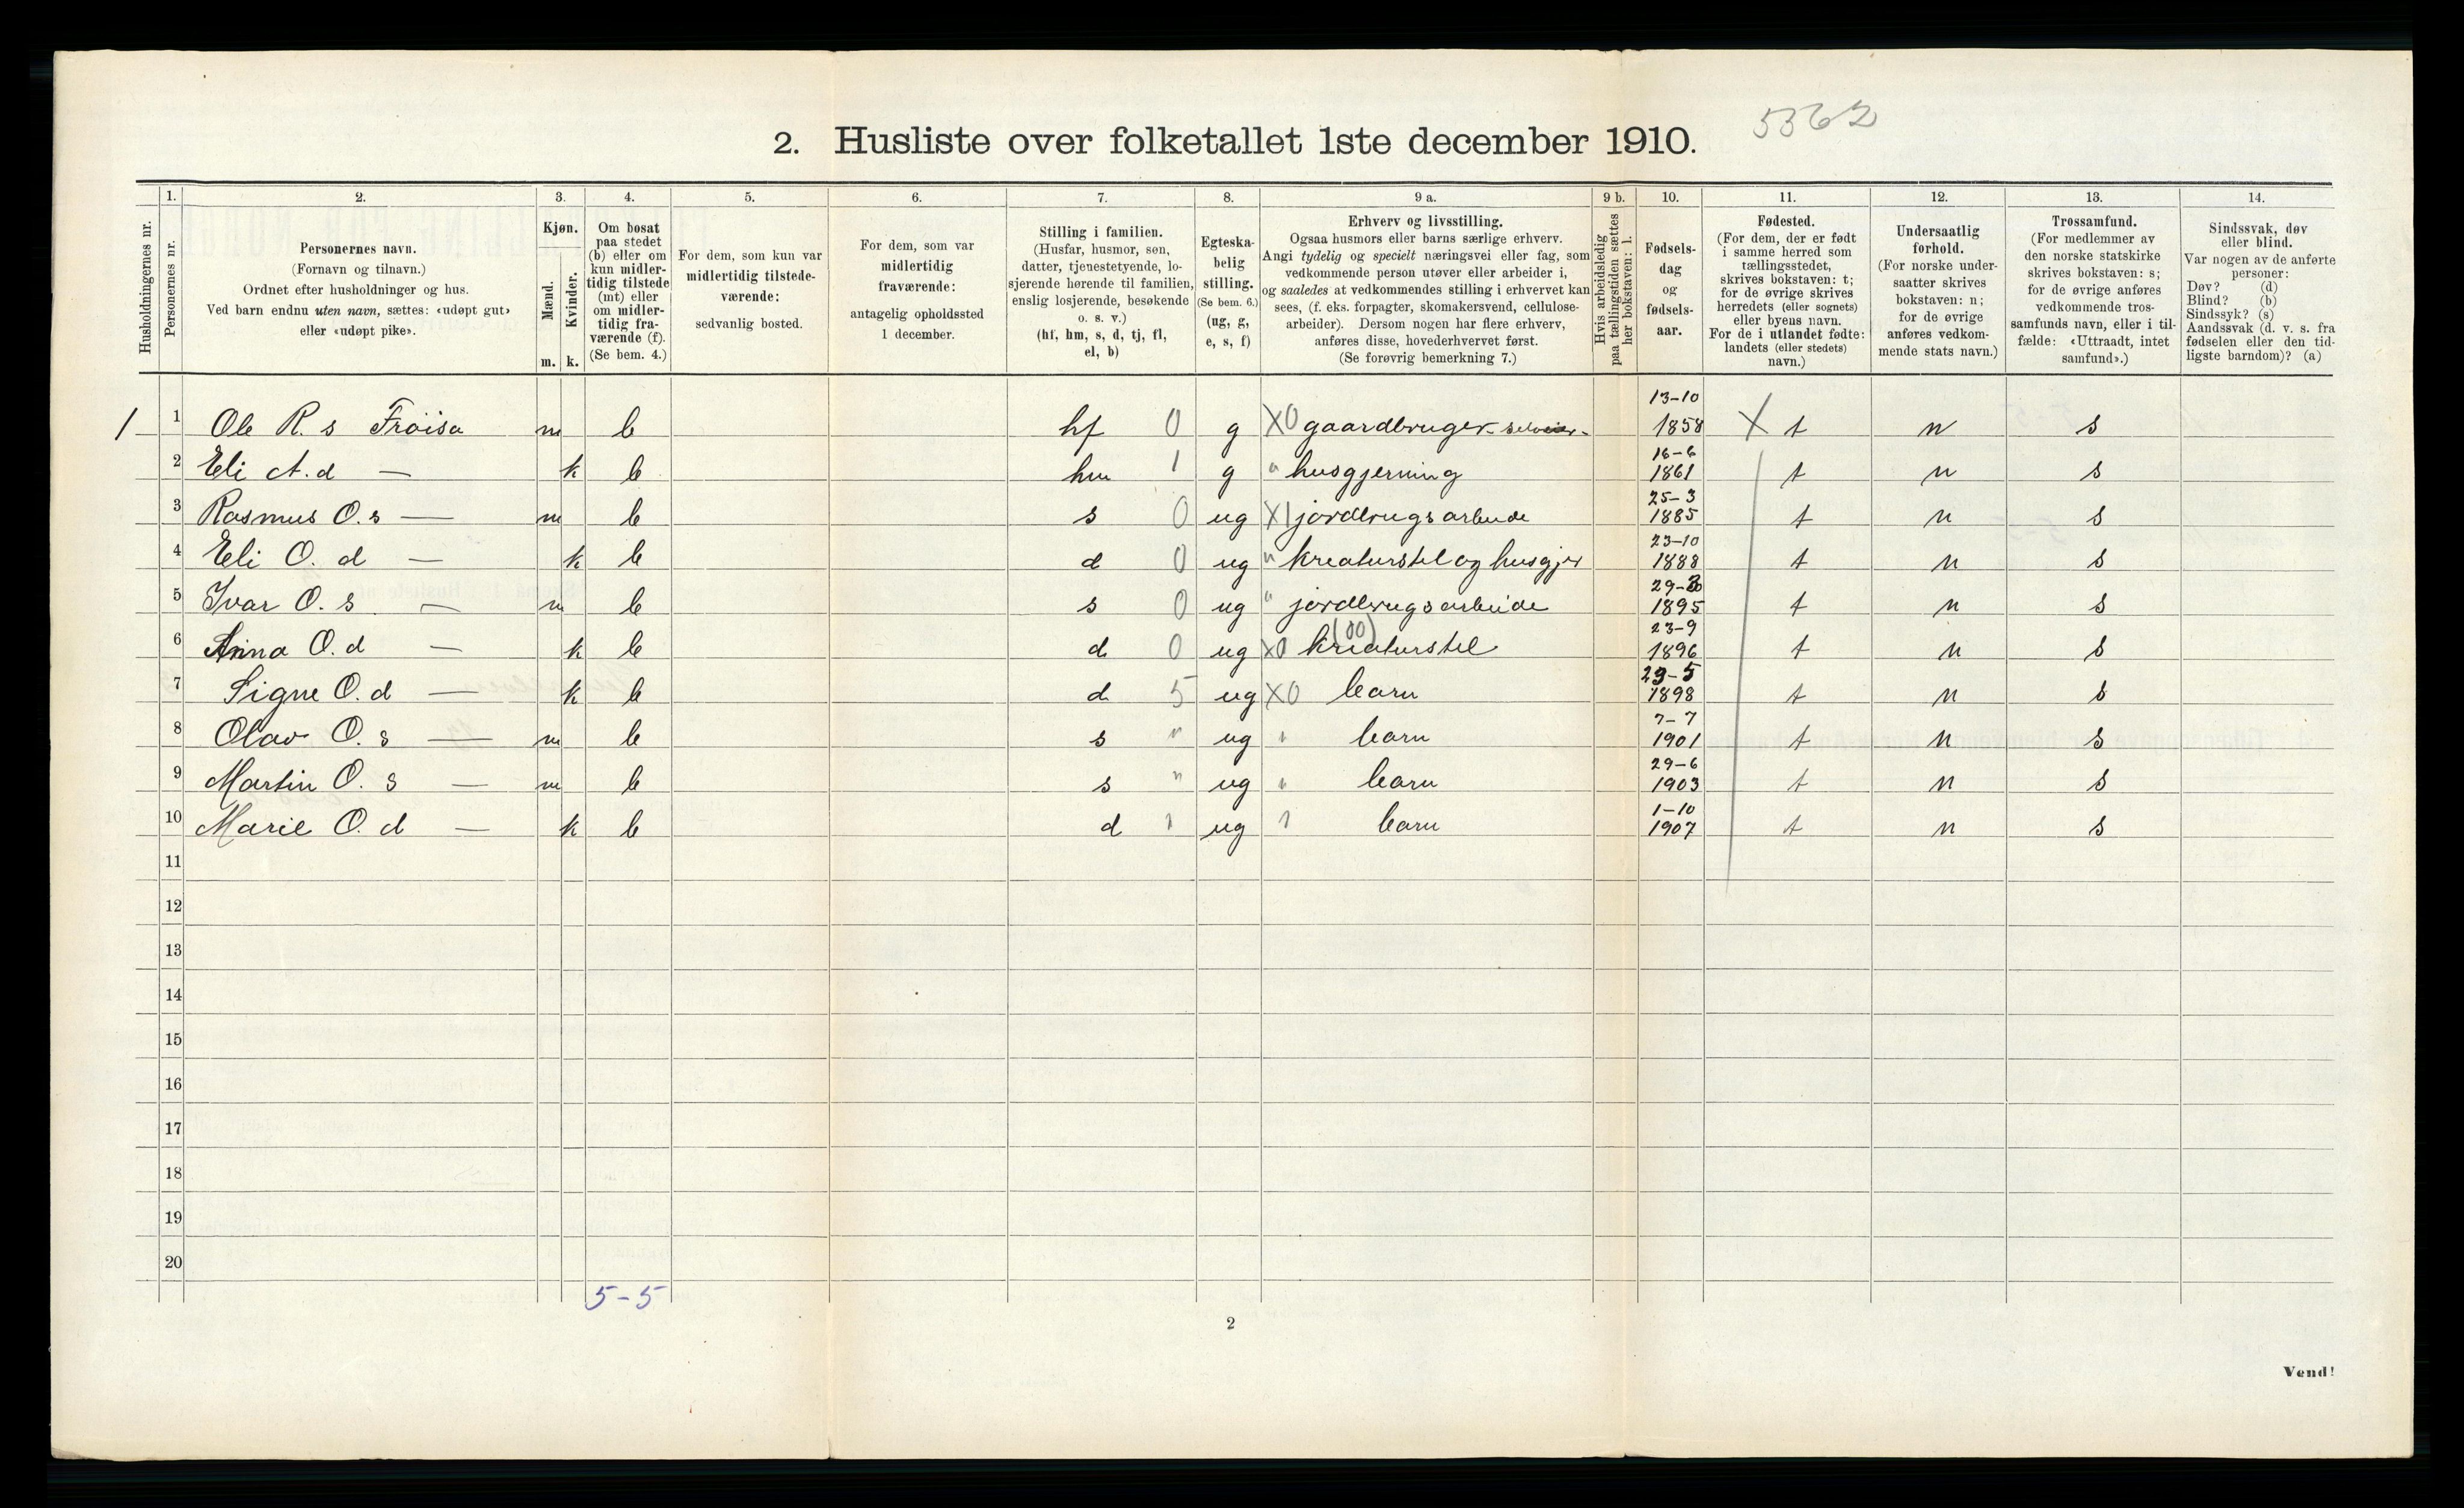 5362
2. Husliste over folketallet 1ste december 1910.
Husholdningernes nr.
1. Personernes nr.
2. Personernes navn. (Fornavn og tilnavn.) Ordnet efter husholdninger og hus. Ved barn endnu uten navn, sættes: «udøpt gut» eller «udøpt pike».
3. Kjøn. Mænd. m. Kvinder. k.
4. Om bosat paa stedet (b) eller om kun midlertidig tilstede (mt) eller om midlertidig fraværende (f). (Se bem. 4.)
5. For dem, som kun var midlertidig tilstedeværende: sedvanlig bosted.
6. For dem, som var midlertidig fraværende: antagelig opholdssted 1 december.
7. Stilling i familien. (Husfar, husmor, søn, datter, tjenestetyende, losjerende hørende til familien, enslig losjerende, besøkende o. s. v.) (hf, hm, s, d, tj, fl, el, b)
8. Egteskabelig stilling. (Se bem. 6.) (ug, g, e, s, f)
9 a. Erhverv og livsstilling. Ogsaa husmors eller barns særlige erhverv. Angi tydelig og specielt næringsvei eller fag, som vedkommende person utøver eller arbeider i, og saaledes at vedkommendes stilling i erhvervet kan sees, (f. eks. forpagter, skomakersvend, cellulosearbeider). Dersom nogen har flere erhverv, anføres disse, hovederhvervet først. (Se forøvrig bemerkning 7.)
9 b. Hvis arbeidsledig paa tællingstiden sættes her bokstaven: l.
10. Fødselsdag og fødselsaar.
11. Fødested. (For dem, der er født i samme herred som tællingsstedet, skrives bokstaven: t; for de øvrige skrives herredets (eller sognets) eller byens navn. For de i utlandet fødte: landets (eller stedets) navn.)
12. Undersaatlig forhold. (For norske undersaatter skrives bokstaven: n; for de øvrige anføres vedkommende stats navn.)
13. Trossamfund. (For medlemmer av den norske statskirke skrives bokstaven: s; for de øvrige anføres vedkommende trossamfunds navn, eller i tilfælde: «Uttraadt, intet samfund».)
14. Sindssvak, døv eller blind. Var nogen av de anførte personer: Døv? (d) Blind? (b) Sindssyk? (s) Aandssvak (d. v. s. fra fødselen eller den tidligste barndom)? (a)
1 1 Ole R. s Frøisa m b hf 0 g X0 gaardbruger - selveier - 13-10 1858 X t n s
2 Eli A. d — k b hm 1 g " husgjerning 16-6 1861 t n s
3 Rasmus O. s — m b s 0 ug X1 jordbrugsarbeide 25-3 1885 t n s
4 Eli O. d — k b d 0 ug " kreaturstel og husgjer 23-10 1888 t n s
5 Ivar O. s — m b s 0 ug " jordbrugsarbeide 29- 1895 t n s
6 Anna O. d — k b d 0 ug X0 (00) kreaturstel 23-9 1896 t n s
7 Signe O. d — k b d 5 ug X0 barn 29-5 1898 t n s
8 Olav O. s — m b s " ug " barn 7-7 1901 t n s
9 Martin O. s — m b s " ug " barn 29-6 1903 t n s
10 Marie O. d — k b d " ug " barn 1-10 1907 t n s
11
12
13
14
15
16
17
18
19
20
5-5
2
Vend!